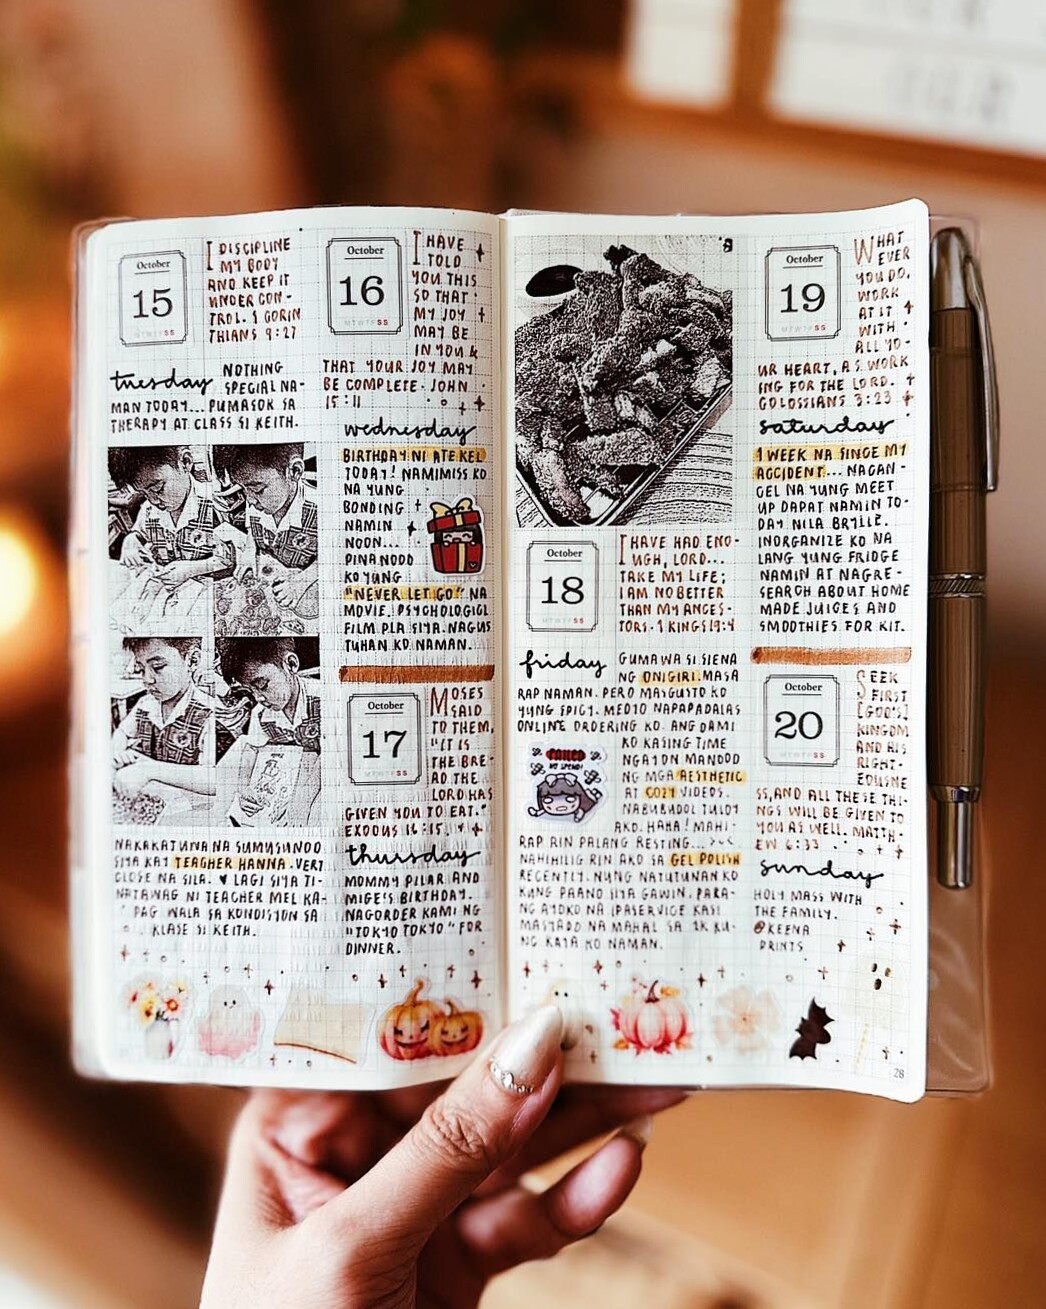 October
15
MTWTFSS
I DISCIPLINE
MY BODY
AND KEEP IT
UNDER CON-
TROL. 1 CORIN
THIANS 9:27
tuesday
NOTHING
SPECIAL NA-
MAN TODAY... PUMASOK SA
THERAPY AT CLASS SI KEITH.
NAKAKATUWA NA SUMUSUNOD
SIYA KAY TEACHER HANNA. VERY
CLOSE NA SILA. ♥ LAGI SIYA TI-
NATAWAG NI TEACHER MEL KA-
PAG WALA SA KONDISYON SA
KLASE SI KEITH.
October
16
MTWTFSS
I HAVE
TOLD
YOU THIS
SO THAT
MY JOY
MAY BE
IN YOU &
THAT YOUR JOY MAY
BE COMPLETE. JOHN
15:11
wednesday
BIRTHDAY NI ATE KEL
TODAY! NAMIMISS KO
NA YUNG
BONDING
NAMIN
NOON...
PINANOOD
KO YUNG
"NEVER LET GO" NA
MOVIE. PSYCHOLOGICL
FILM PLA SIYA. NAGUS
TUHAN KO NAMAN.
October
17
MTWTFSS
MOSES
SAID
TO THEM,
"IT IS
THE BRE-
AD THE
LORD HAS
GIVEN YOU TO EAT."
EXODUS 16:15
thursday
MOMMY PILAR AND
MIGE'S BIRTHDAY.
NAGORDER KAMI NG
"TOKYO TOKYO" FOR
DINNER.
October
18
MTWTFSS
I HAVE HAD ENO-
UGH, LORD...
TAKE MY LIFE;
I AM NO BETTER
THAN MY ANCES-
TORS. 1 KINGS 19:4
friday
GUMAWA SI SIENA
NG ONIGIRI. MASA
RAP NAMAN. PERO MASGUSTO KO
YUNG SPICY. MEDYO NAPAPADALAS
ONLINE ORDERING KO. ANG DAMI
KO KASING TIME
NGAYON MANOOD
NG MGA AESTHETIC
AT COZY VIDEOS.
NABUBUDOL TULOY
AKO. HAHA! MAHI-
RAP RIN PALANG RESTING...
NAHIHILIG RIN AKO SA GEL POLISH
RECENTLY. NUNG NATUTUNAN KO
KUNG PAANO SIYA GAWIN. PARA-
NG AYOKO NA IPASERVICE KASI
MASYADO NA MAHAL SA 1K KU-
NG KAYA KO NAMAN.
FAILED
NO SPEND!
October
19
MTWTFSS
WHAT
EVER
YOU DO,
WORK
AT IT
WITH
ALL YO-
UR HEART, AS WORK
ING FOR THE LORD.
COLOSSIANS 3:23
saturday
1 WEEK NA SINCE MY
ACCIDENT... NACAN-
CEL NA YUNG MEET
UP DAPAT NAMIN TO-
DAY NILA BRYLLE.
INORGANIZE KO NA
LANG YUNG FRIDGE
NAMIN AT NAGRE-
SEARCH ABOUT HOME
MADE JUICES AND
SMOOTHIES FOR KIT.
October
20
MTWTFSS
SEEK
FIRST
[GOD'S]
KINGDOM
AND HIS
RIGHT-
EOUSNE
SS, AND ALL THESE THI-
NGS WILL BE GIVEN TO
YOU AS WELL. MATTH-
EW 6:33
sunday
HOLY MASS WITH
THE FAMILY.
@KEENA
PRINTS
28